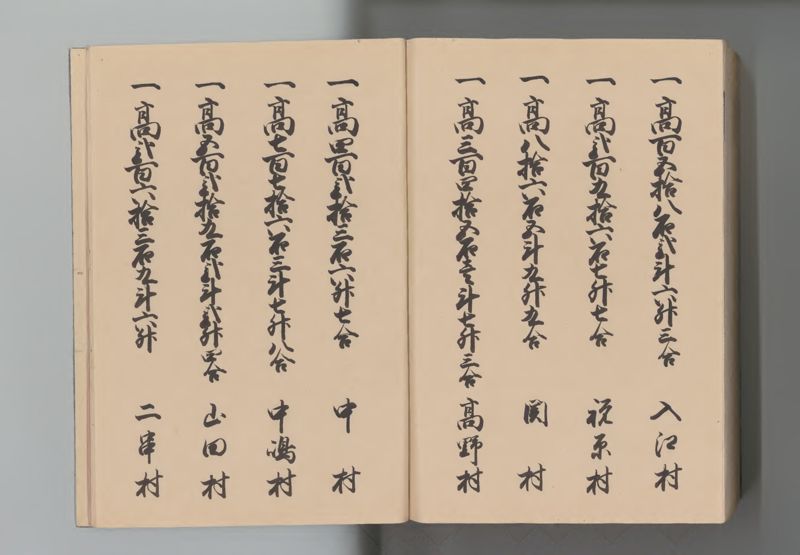 一高百五拾八石弐斗六升三合 入江村
一高弐百九拾六石七升七合 祝原村
一高八拾六石五斗九升九合 関村
一高三百四拾五石壱斗七升三合 高野村
一高四百弐拾三石六升七合 中村
一高七百七拾六石三斗七升八合 中嶋村
一高五百弐拾九石弐斗弐升四合 山田村
一高弐百六拾三石九斗六升 二串村